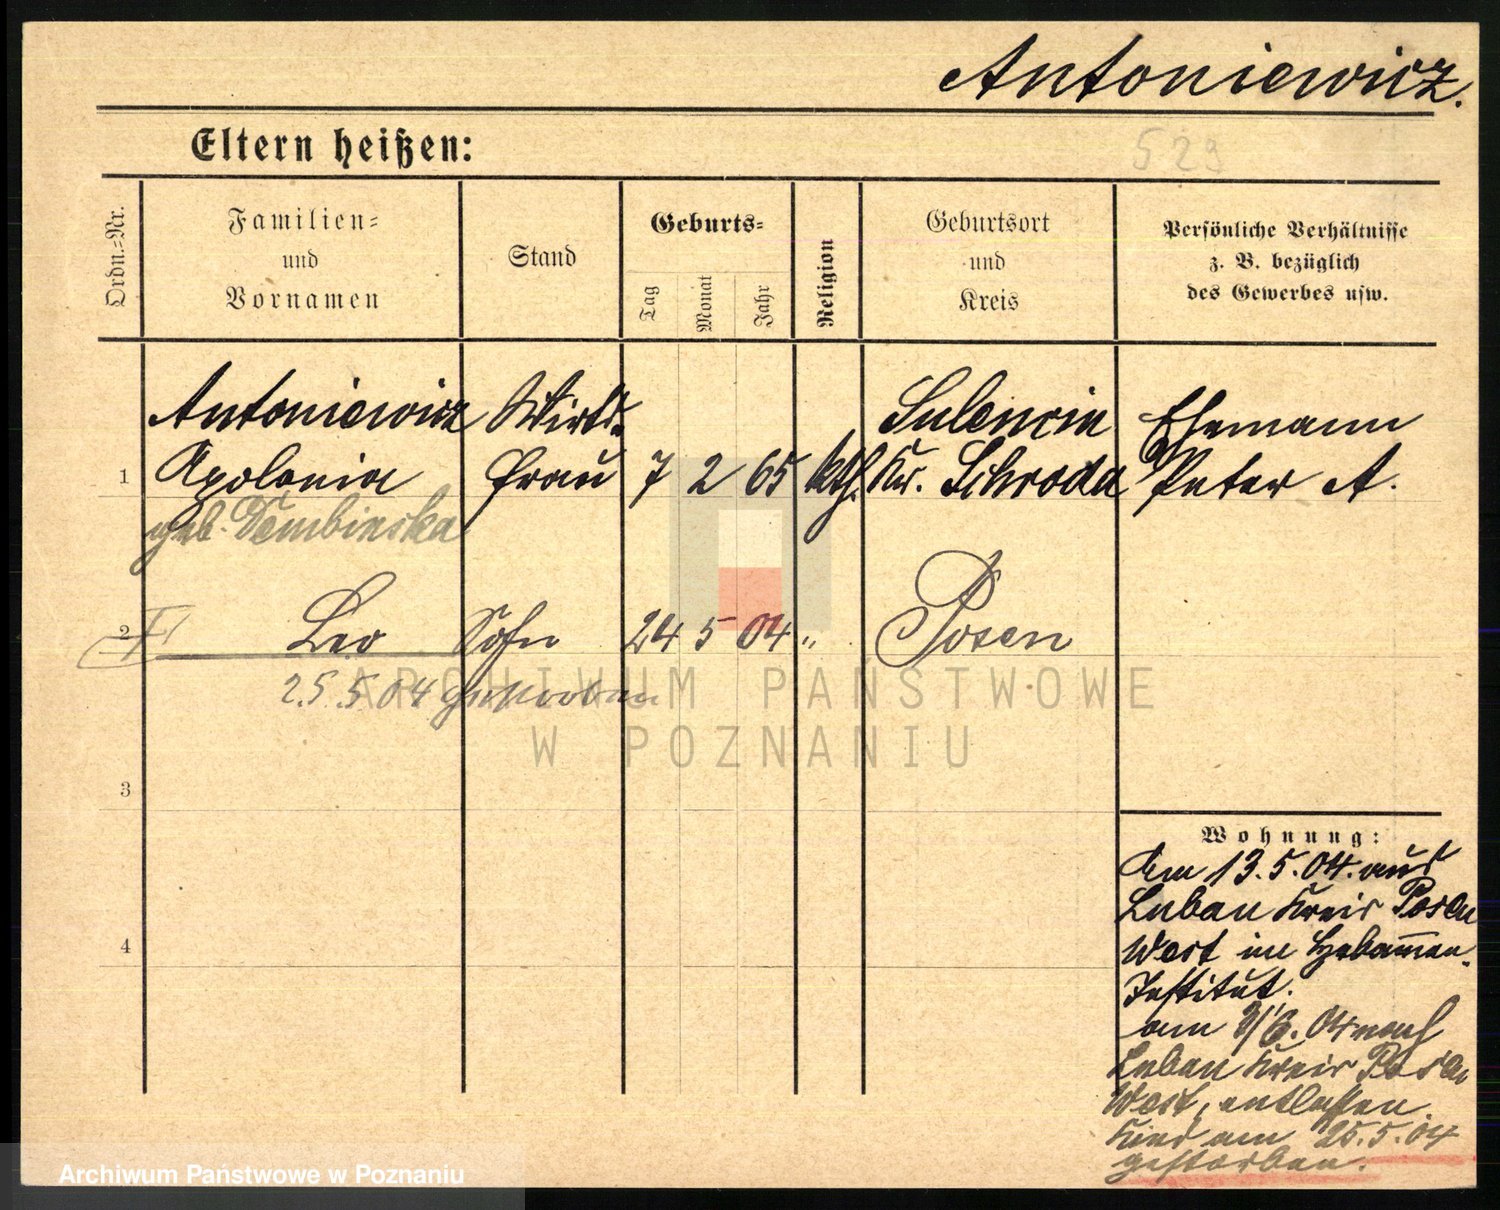 Antoniewicz.
529
Eltern heißen:
Ordn.=Nr.
Familien=
und
Vornamen
Stand
Geburts=
Tag
Monat
Jahr
Religion
Geburtsort
und
Kreis
Persönliche Verhältnisse
z. B. bezüglich
des Gewerbes usw.
1
Antoniewicz
Apolonia
geb. Dembinska
Wirts-
frau
7 2 65 kth.
Sulencin
Kr. Schroda
Ehemann
Peter A.
2
Leo Sohn 24 5 04 "
Posen
25.5.04 gestorben
3
4
Wohnung:
Am 13.5.04. aus
Luban Kreis Posen
West im Hebam̅en-
Institut.
am 3/6. 04 nach
Luban Kreis Posen
West, entlassen.
Kind am 25.5.04
gestorben.
ARCHIWUM PAŃSTWOWE
W POZNANIU
Archiwum Państwowe w Poznaniu